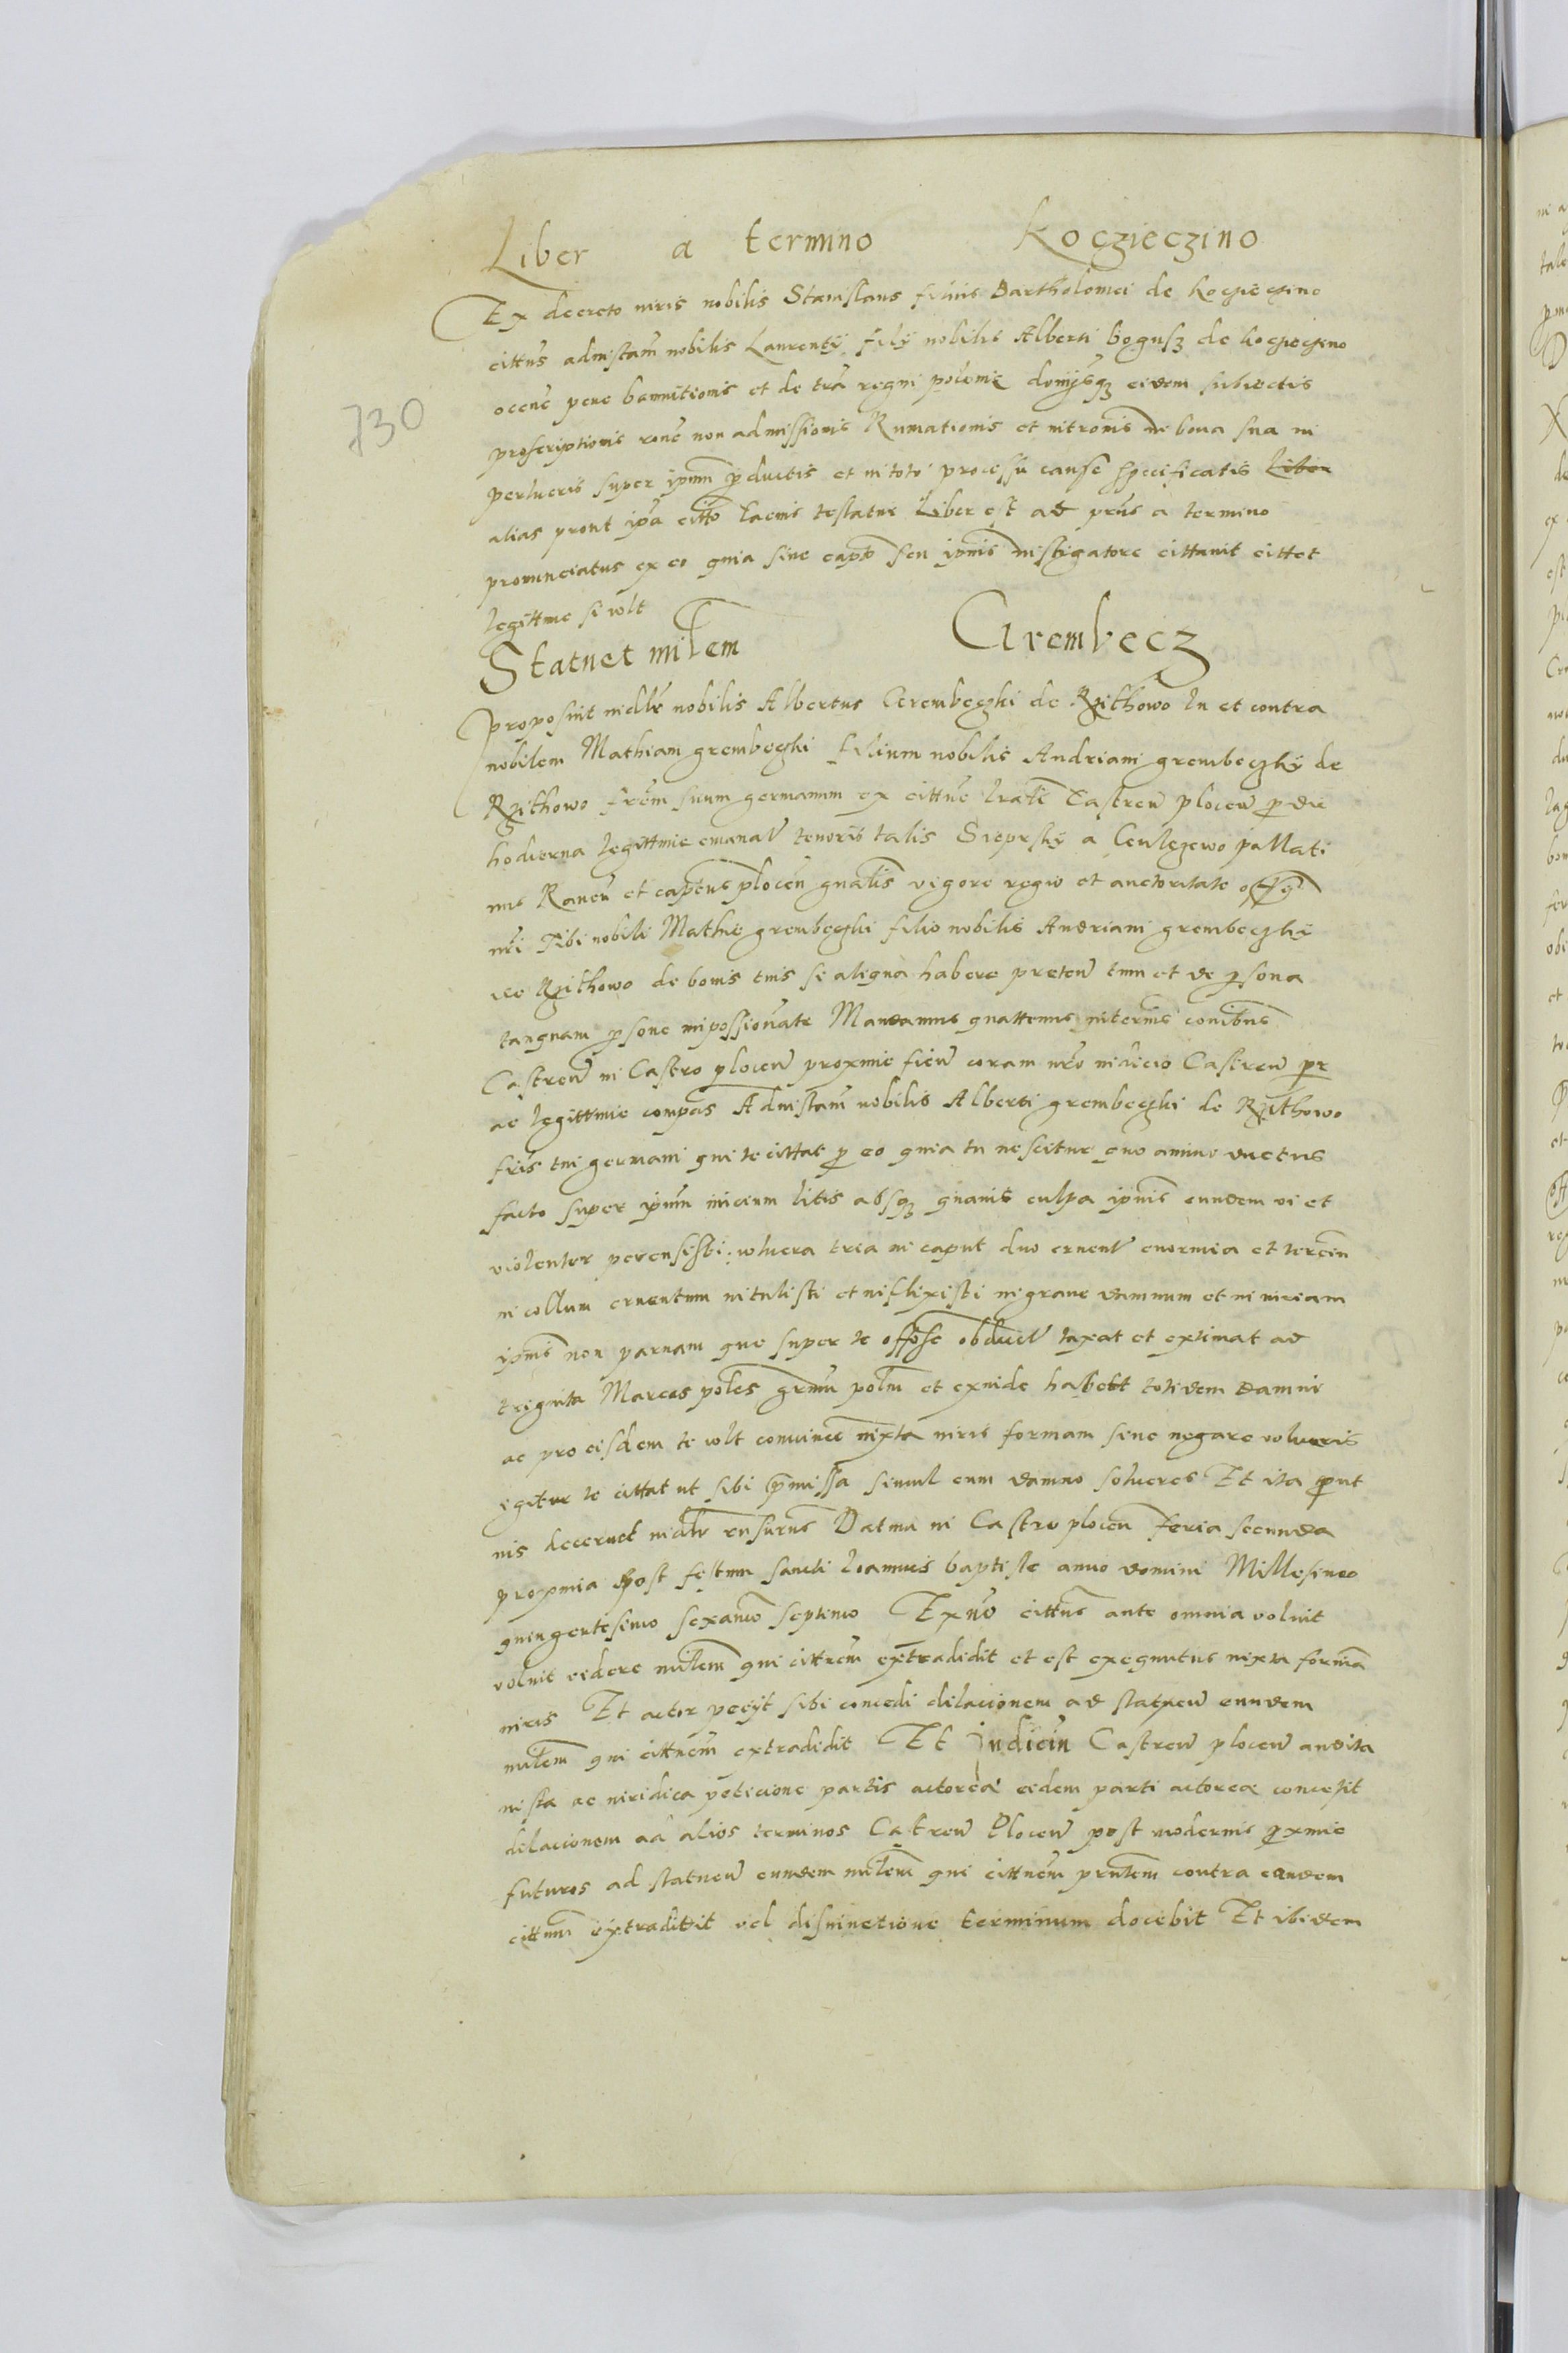 Liber a termino Koczieczino
Ex decreto iuris nobilis Stanislaus filius Bartholomei de Koczieczino
cittus ad instam nobilis Laurentij filij nobilis Alberti Bogusz de Koczieczino
occne pene bannitionis et de tra regni polonie domijsqz eidem subiectis
proscriptionis rone non admissionis Rumationis et intronis in bona sua in
perlucris super ipsum pductis et in toto processu cause specificatis Liber
alias prout ipsa citto lacius testatur Liber est ad prns a termino
pronunciatus ex eo quia sine capto seu ipsius instigatore cittavit cittet
legittme si volt
Statuet miltem Grembecz
Proposuit in dlr nobilis Albertus Grembeczki de Rzithowo In et contra
nobilem Mathiam grembeczki filium nobilis Andriani grembeczkij de
Rzithowo frem suum germanum ex cittne Castren plocen p die
hodierna legittmie emanat tenoris talis Sieprskij a Gulczewo pallati
nus Raven et captus plocen gnalis vigore regio et auctoritate offij
nri Tibi nobili Mathie grembeczki filio nobilis Andriani grembeczkij
de Rzithowo de bonis tuis si aliqua habere preten tum et de psona
tanquam psone inpossionate Mandamus quattenus in terminis conibus
Castren in Castro plocen proxmie fien coram nro iudicio Castren pr
ac legittmie compas Ad instam nobilis Alberti grembeczki de Rzithowo
fris tui germani qui te cittat p eo quia tu nescitur quo animo ductus
facto super ipsum inicium litis absqz quavis culpa ipsius eundem vi et
violenter percusisti vulnera tria in caput duo cruent enormia et tercium
in collum cruentum intulisti et inflixisti in grave damnum et iniuriam
ipsius non parvam que super te offose obduct taxat et extimat ad
triginta Marcas poles grmu polm et exinde habett totidem damni
ac pro eisdem te volt convince iuxta iuris formam sine negare volueris
igitur te cittat ut sibi pmissa simul cum damno solveres Et ita put
ius decernet iudlr rnsurus Datum in Castro plocen feria secunda
proxmia post festum sancti Joannis baptiste anno domini Millesimo
quingentesimo sexamo septimo Ex no cittus ante omnia voluit
voluit videre miltem qui cittnem extradidit et est exequutus iuxta formam
iuris Et actor petijt sibi concedi dilacionem ad statuen eundem
miltem qui cittnem extradidit Et Judicium Castren plocen audita
iusta ac iuridica peticione partis actorea eidem parti actorea concessit
dilacionem ad alios terminos Castren Plocen post modernis pxmie
futuros ad statuen eundem miltem qui cittnem prntem contra eundem
cittum extradidit vel disiunctione terminum docebit Et ibidem
730